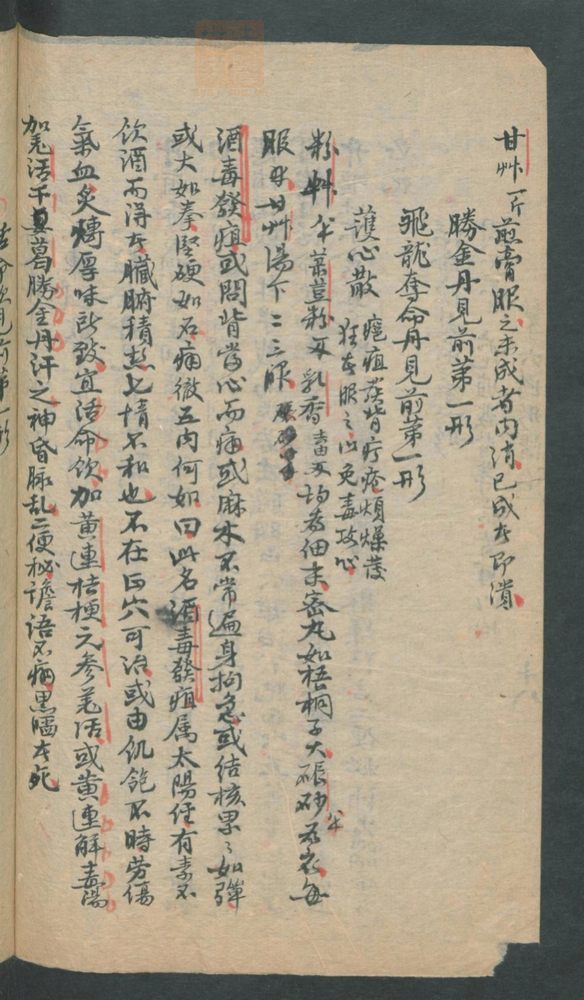 甘艸一斤煎膏服之未成者內消已成者即潰
勝金丹見前第一形
飛龍奪命丹見前第一形
護心散 瘡疽發背疔瘡煩燥發
狂者服之以免毒攻心
粉艸 菉荳粉 乳香 為細末蜜丸如梧桐子大硃砂為衣每
服用甘艸湯下二三服
酒毒發疽或問背當心而痛或麻木不常遍身拘急或結核累々如彈
或大如拳堅硬如石痛徹五內何如曰此名酒毒發疽属太陽經有毒不
飲酒而得者臟腑積熱七情不和也不在因穴可治或由飢飽不時劳傷
氣血炙煿厚味所致宜活命飲加黃連桔梗元參羌活或黃連解毒湯
加羌活干葛勝金丹汗之神昏脉乱二便秘譫語不痛黑陷者死